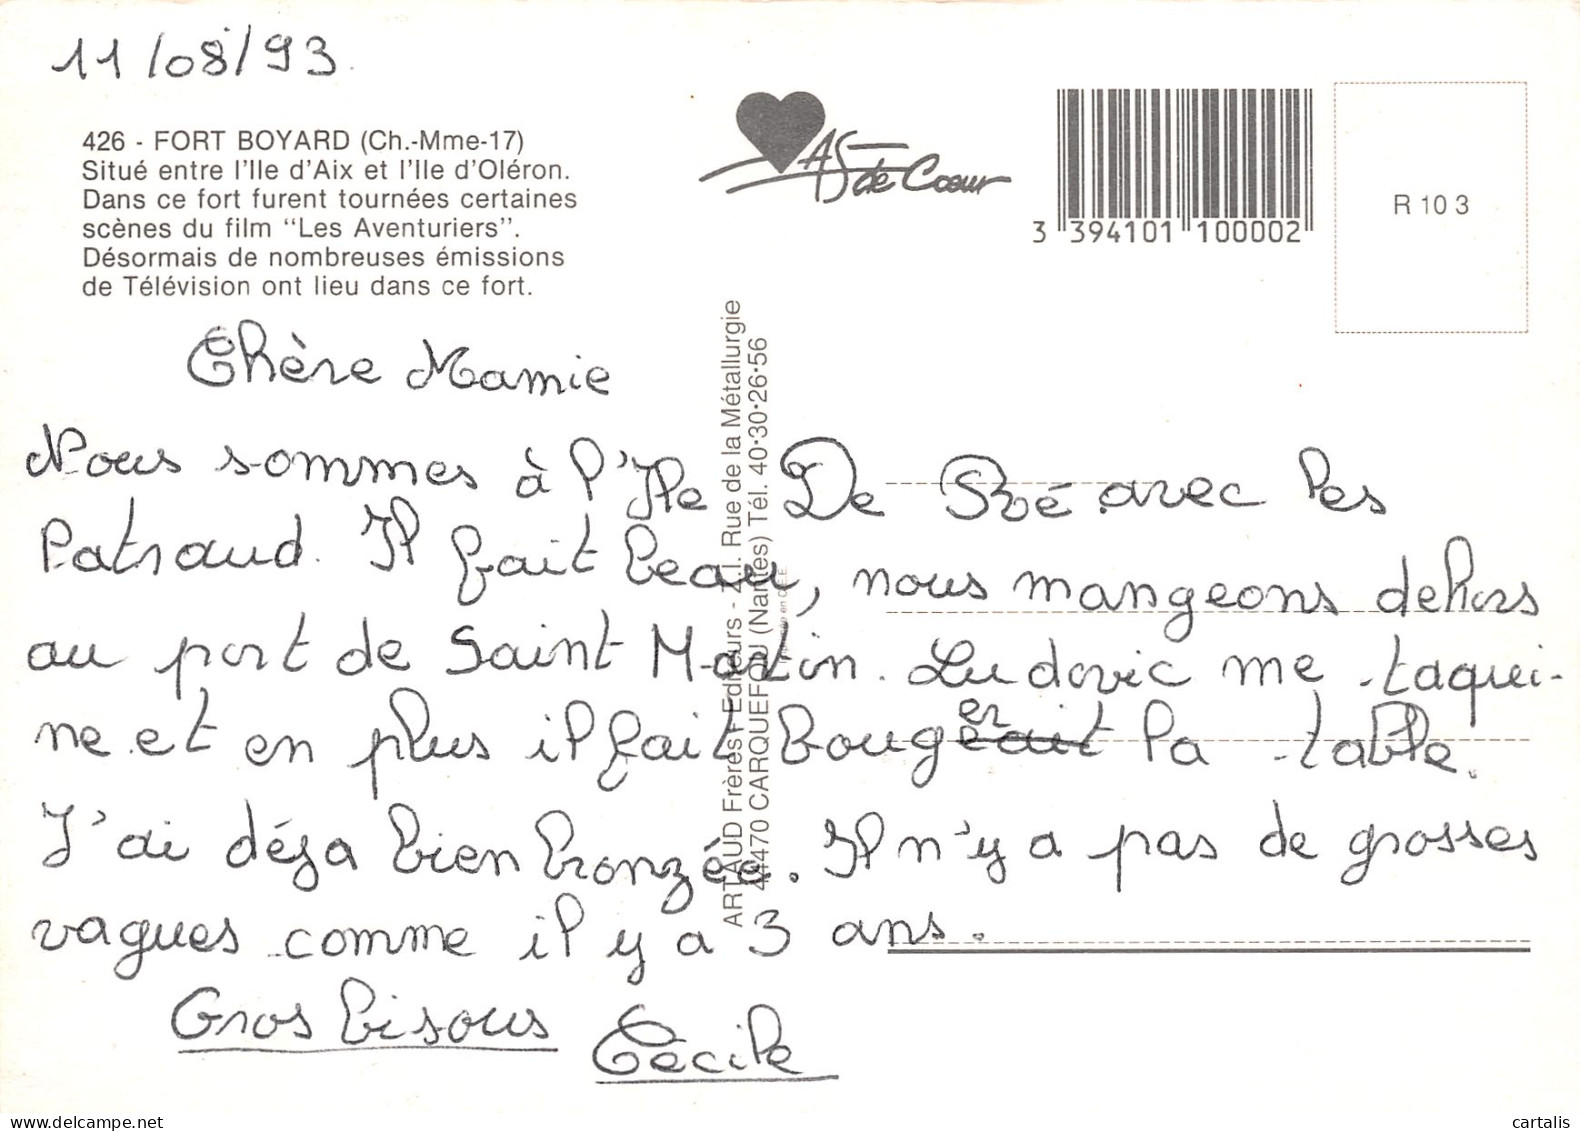 11/08/93
426 - FORT BOYARD (Ch.-Mme-17)
Situé entre l'Ile d'Aix et l'Ile d'Oléron.
Dans ce fort furent tournées certaines
scènes du film "Les Aventuriers".
Désormais de nombreuses émissions
de Télévision ont lieu dans ce fort.
AS de Cœur
3 394101 100002
R 10 3
ARTAUD Frères Editeurs - Z.I. Rue de la Métallurgie
44470 CARQUEFOU (Nantes) Tél. 40·30·26·56
Chère Mamie
Nous sommes à l'Ile De Ré avec les
Patraud. Il fait beau, nous mangeons dehors
au port de Saint Martin. Ludovic me taqui-
ne et en plus il fait bouger la table.
J'ai déja bien bronzée. Il n'y a pas de grosses
vagues comme il y a 3 ans.
Gros bisous Cécile
delcampe.net
cartalis